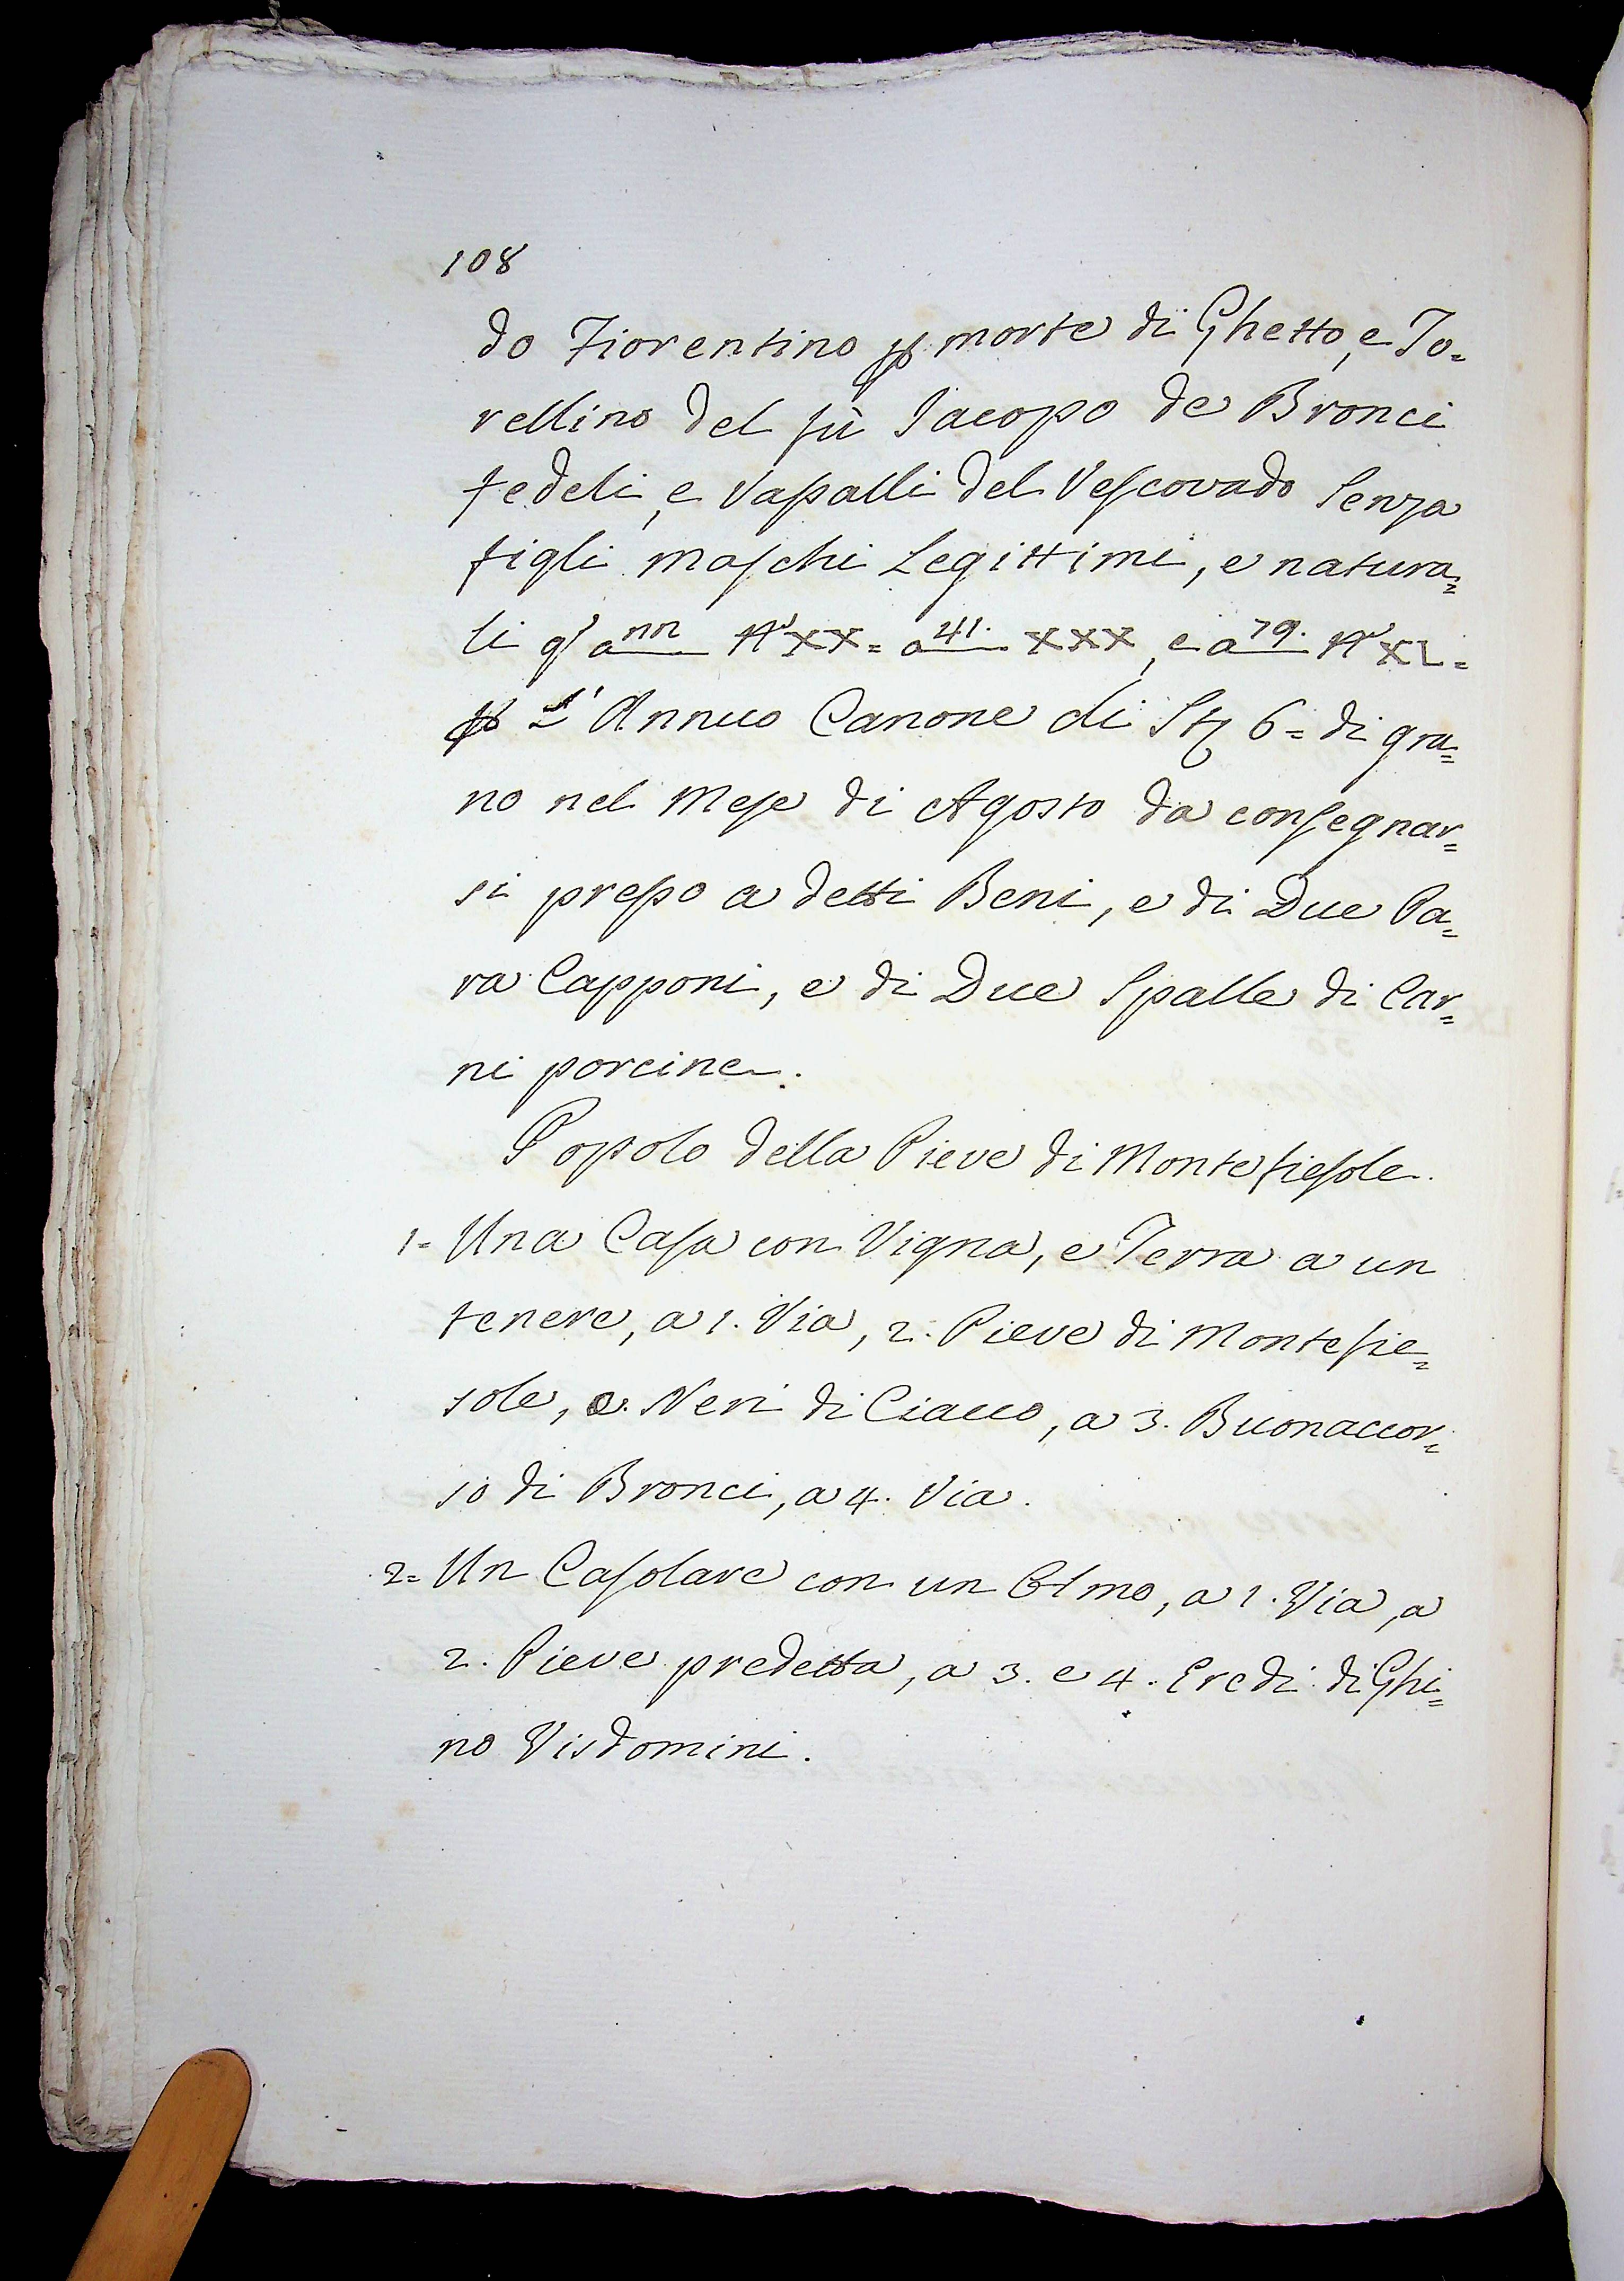 108
do Fiorentino p morte di Ghetto, e To=
rellino del fù Jacopo de Bronci
fedeli, e Vaſsalli del Veſcovado Senza
figli maſchi Legittimi, e natura=
li q a nn N XX= a 41. XXX, e a 79. N XL=
p L'Annuo Canone di St 6= di gra=
no nel Meſe di Agosto da conſegnar=
si preſso a detti Beni, e di Due Pa=
ra Capponi, e di Due Spalle di Car=
ni porcine.
Popolo della Pieve di Montefieſole.
1= Una Caſa con Vigna, e Terra a un
tenere, a 1. Via, 2. Pieve di Montefie=
sole, e Neri di Ciacco, a 3. Buonaccor=
so di Bronci, a 4. Via.
2= Un Caſolare con un Olmo, a 1. Via, a
2. Pieve predetta, a 3. e 4. Eredi di Ghi=
no Visdomini.